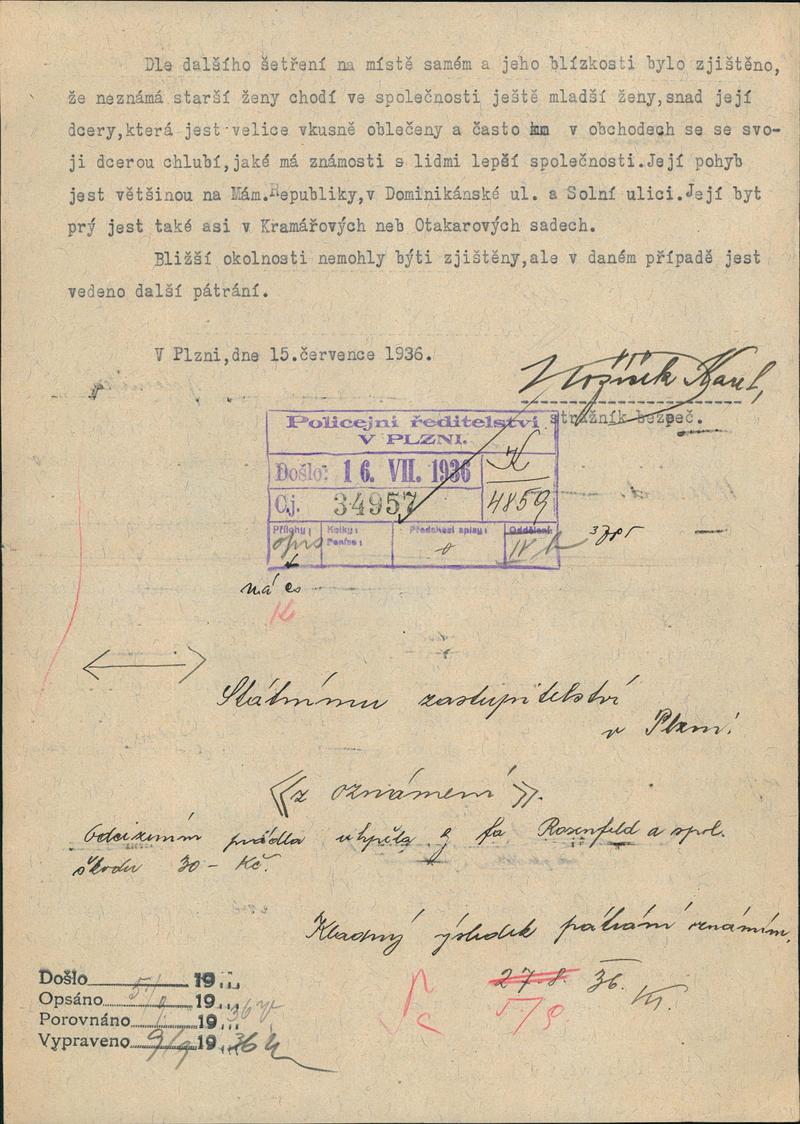 Dle dalšího šetření na místě samém a jeho blízkosti bylo zjištěno,
že neznámá starší ženy chodí ve společnosti ještě mladší ženy,snad její
dcery,která jest velice vkusně oblečeny a často v obchodech se se svo-
ji dcerou chlubí,jaké má známosti s lidmi lepší společnosti.Její pohyb
jest většinou na Mám.Republiky,v Dominikánské ul. a Solní ulici.Její byt
prý jest také asi v Kramářových neb Otakarových sadech.
Bližší okolnosti nemohly býti zjištěny,ale v daném případě jest
vedeno další pátrání.
V Plzni,dne 15.července 1936.
Karel,
strážník bezpeč.
Policejní ředitelství
V PLZNI.
Došlo: 16. VII. 1936
Čj. 34957
4859
Přílohy: Kolky: Peníze: Předchozí spisy: Oddělení:
opis IV b
má
Státnímu zastupitelství
v Plzni.
z oznámení
Odcizením prádla utrpěla fa Rosenfeld a spol.
škodu 30- Kč.
Kladný výsledek pátrání oznámím.
27.8. 36.
5/9
Došlo 19
Opsáno 19
Porovnáno 19 36
Vypraveno 9/9 19 36